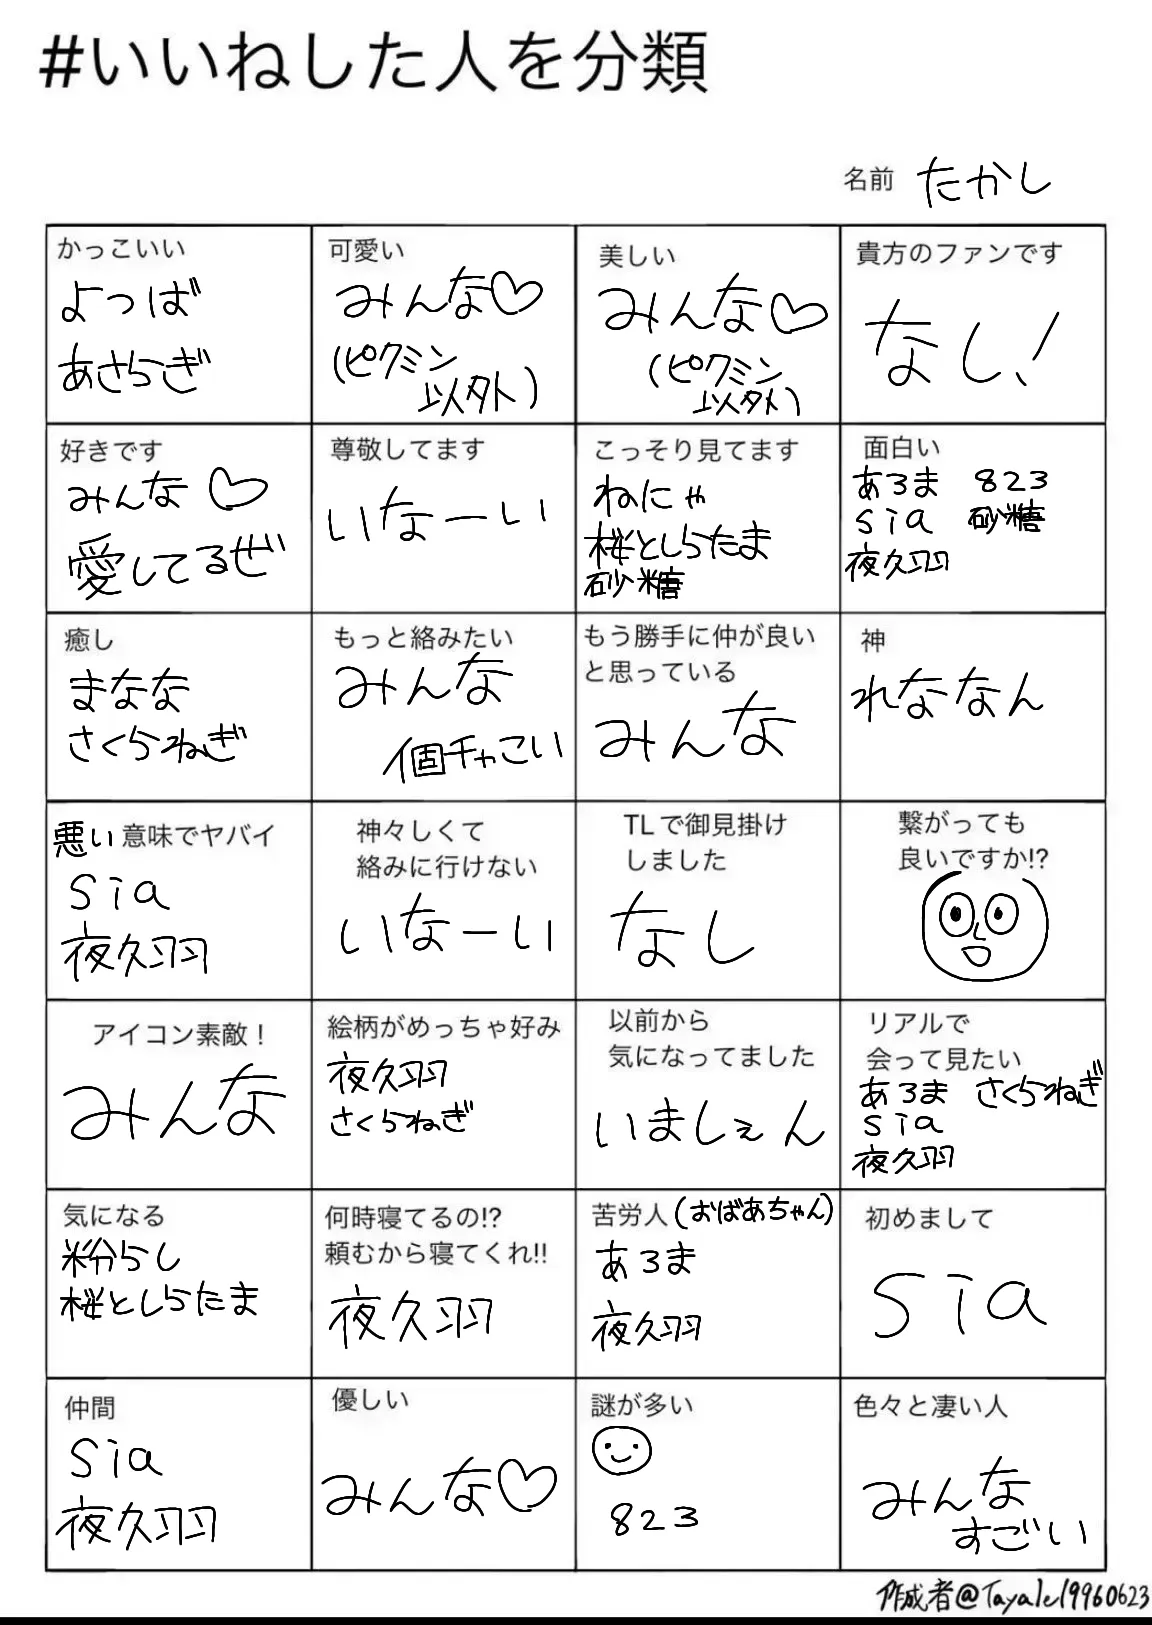 #いいねした人を分類
名前 たかし
かっこいい
よつば
あさらぎ
可愛い
みんな♡
(ピクミン
以外)
美しい
みんな♡
(ピクミン
以外)
貴方のファンです
なし!
好きです
みんな♡
愛してるぜ
尊敬してます
いなーい
こっそり見てます
ねにゃ
桜としらたま
砂糖
面白い
あろま 823
sia 砂糖
夜久羽
癒し
まなな
さくらねぎ
もっと絡みたい
みんな
個チャこい
もう勝手に仲が良い
と思っている
みんな
神
れななん
悪い意味でヤバイ
sia
夜久羽
神々しくて
絡みに行けない
いなーい
TLで御見掛け
しました
なし
繋がっても
良いですか!?
アイコン素敵!
みんな
絵柄がめっちゃ好み
夜久羽
さくらねぎ
以前から
気になってました
いましぇん
リアルで
会って見たい
あろま さくらねぎ
sia
夜久羽
気になる
粉らし
桜としらたま
何時寝てるの!?
頼むから寝てくれ!!
夜久羽
苦労人(おばあちゃん)
あろま
夜久羽
初めまして
sia
仲間
sia
夜久羽
優しい
みんな♡
謎が多い
823
色々と凄い人
みんな
すごい
作成者@Tayale19960623